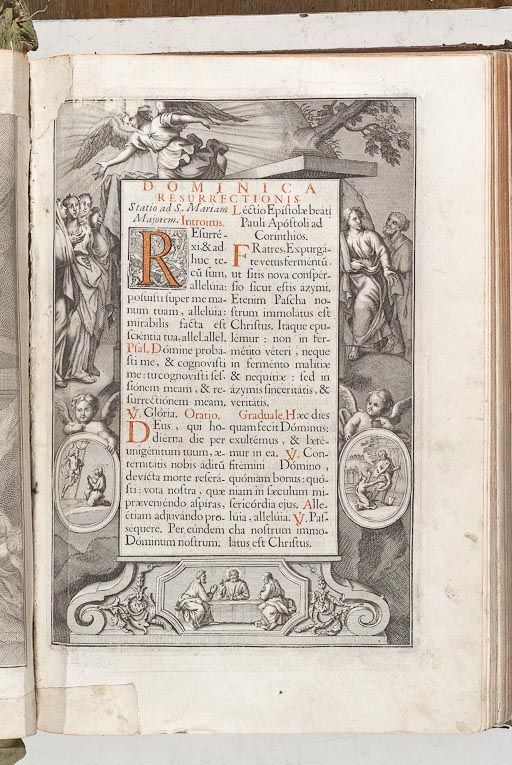 DOMINICA
RESURRECTIONIS
Statio ad S. Mariam
Majorem. Introitus.
REsurré-
xi, & ad
huc te-
cũ sum,
alleluia:
posuisti super me ma-
num tuam, alleluia:
mirabilis facta est
scientia tua, allel. allel.
Psal. Dómine proba-
sti me, & cognovisti
me: tu cognovisti ses-
sionem meam, & re-
surrectiónem meam.
℣. Glória. Oratio.
DEus, qui ho-
diérna die per
unigénitum tuum, æ-
ternitátis nobis áditũ
devícta morte reserá-
sti: vota nostra, quæ
præveniéndo aspíras,
étiam adjuvándo pro-
séquere. Per eúndem
Dóminum nostrum.
Léctio Epistolæ beáti
Pauli Apóstoli ad
Corinthios.
FRatres. Expurgá-
te vetus ferméntũ,
ut sitis nova conspér-
sio sicut estis ázymi.
Etenim Pascha no-
strum immolátus est
Christus. Itaque epu-
lémur: non in fer-
ménto véteri, neque
in ferménto malítiæ
& nequítiæ: sed in
ázymis sinceritátis, &
veritátis.
Graduale. Hæc dies
quam fecit Dóminus:
exultémus, & læté-
mur in ea. ℣. Con-
fitémini Dómino,
quóniam bonus: quó-
niam in sæculum mi-
sericórdia ejus. Alle-
luia, alleluia. ℣. Pas-
cha nostrum immo-
latus est Christus.